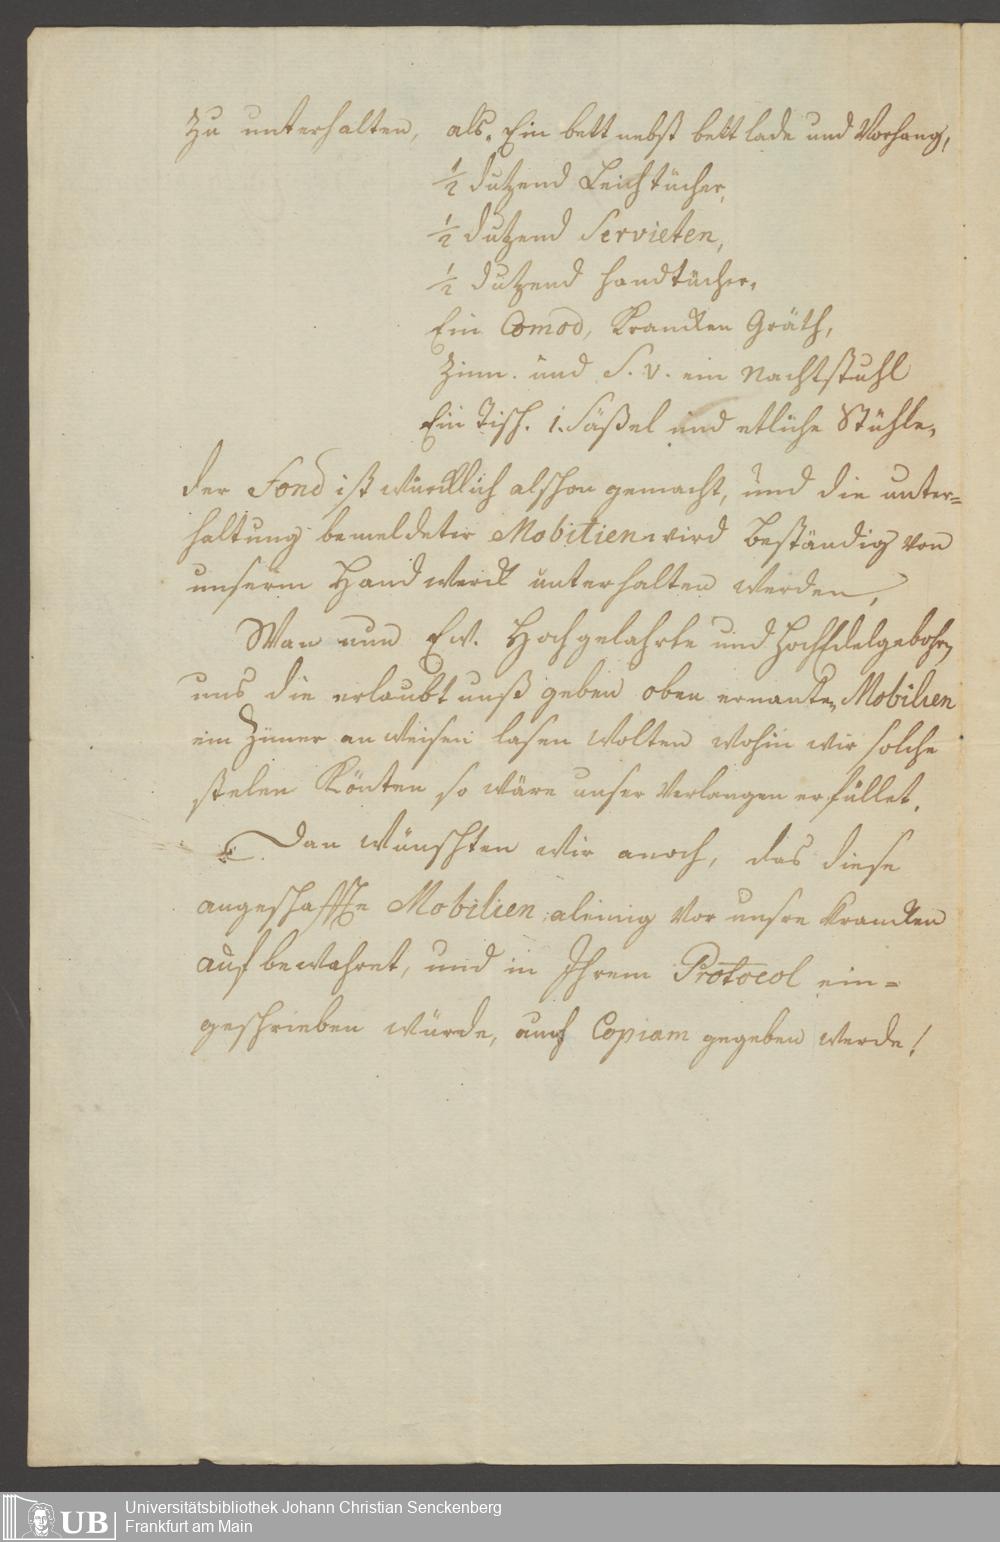 Zu unterhalten, als. Ein bett nebst bett lade und Vorhang,
1/2 dutzend Leichtücher,
1/2 dutzend Servieten,
1/2 dutzend handtücher,
Ein Comod, Krancken Gräth,
Zinn. und S. v. ein Nachtstuhl
Ein Tisch. 1. Säßel und etliche Stühle,
der Fond ist würcklich alschon gemacht, und die unter=
haltung bemeldeter Mobilien wird beständig von
unserm Handwerck unterhalten werden,
Wan nun Ew. Hochgelahrte und HochEdelgebohrn
uns die erlaubt nuß geben oben ernanten Mobilien
ein Zimer an weisen lasen wolten wohin wir solche
stelen Könten so wäre unser Verlangen erfüllet.
Dan wünschten wir anoch, das diese
angeschaffte Mobilien aleinig Vor unsre Krancken
aufbewahret, und in Ihrem Protocol ein=
geschrieben würde, auch Copiam gegeben werde!
UB
Universitätsbibliothek Johann Christian Senckenberg
Frankfurt am Main